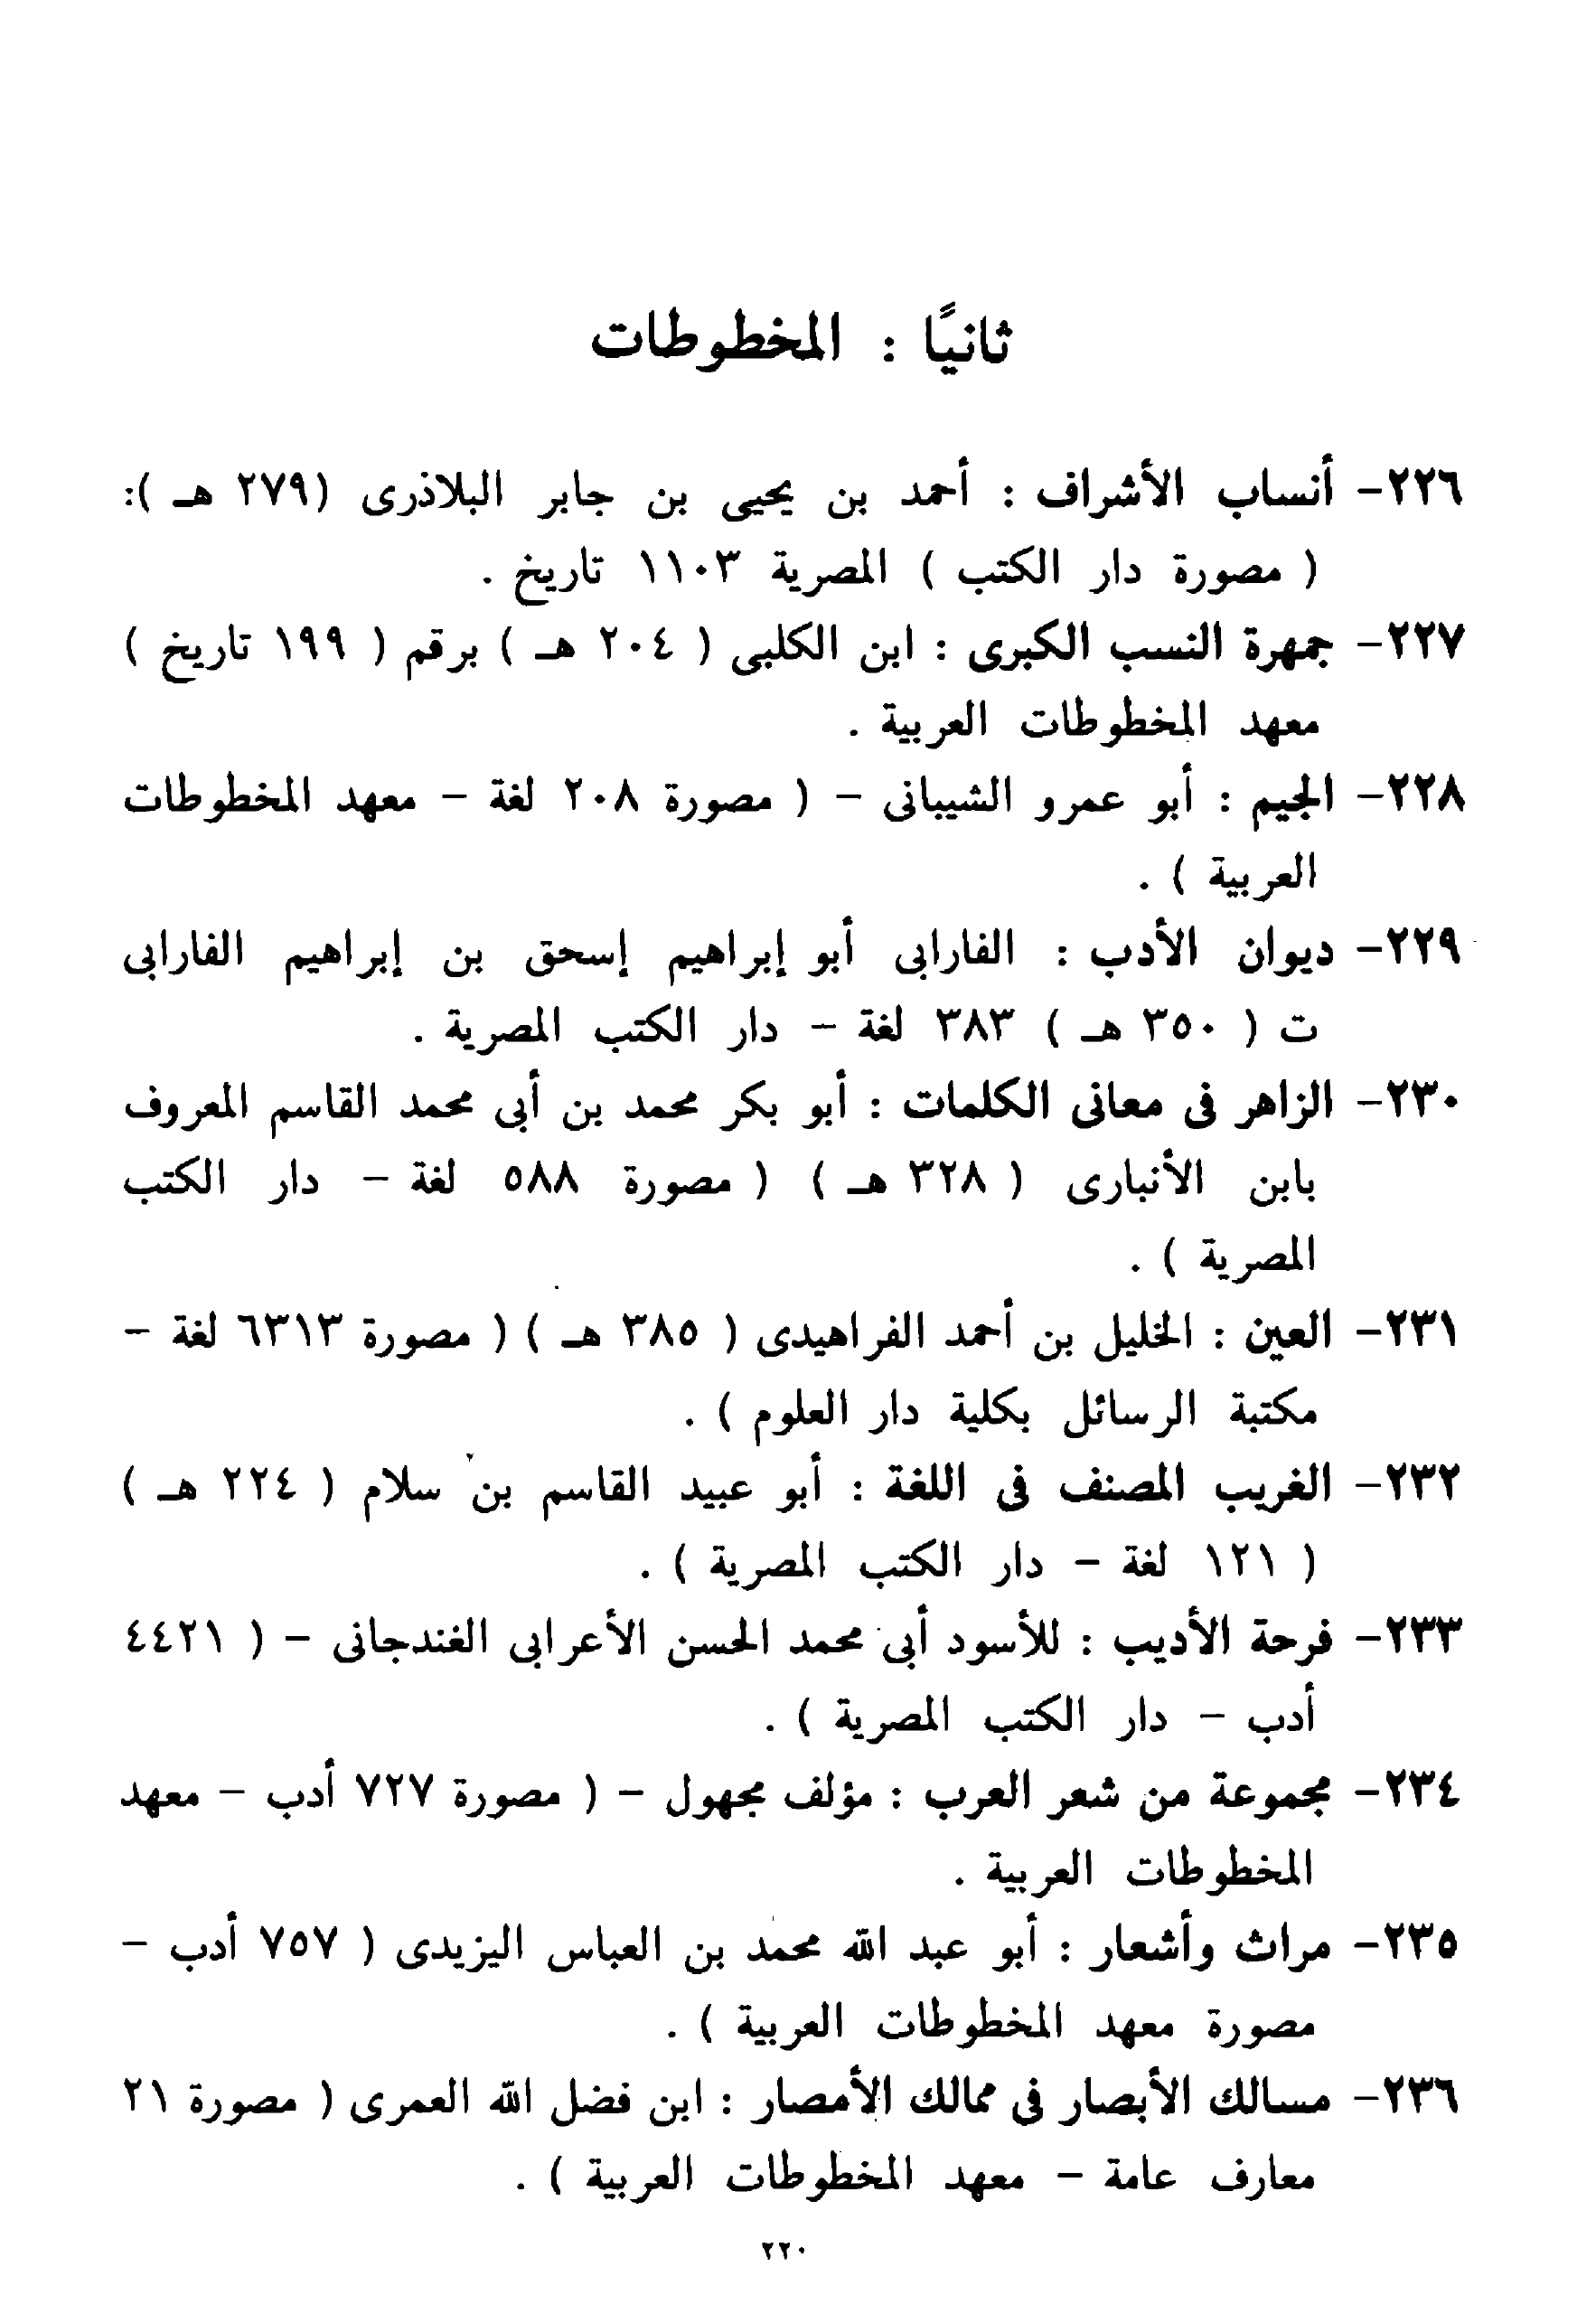 ثانيًا : المخطوطات
٢٢٦- أنساب الأشراف : أحمد بن يحيى بن جابر البلاذرى (٢٧٩ هـ ):
( مصورة دار الكتب ) المصرية ١١٠٣ تاريخ .
٢٢٧- جمهرة النسب الكبرى : ابن الكلبى ( ٢٠٤ هـ ) برقم ( ١٩٩ تاريخ )
معهد المخطوطات العربية .
٢٢٨- الجيم : أبو عمرو الشيبانى - ( مصورة ٢٠٨ لغة - معهد المخطوطات
العربية ) .
٢٢٩- ديوان الأدب : الفارابى أبو إبراهيم إسحق بن إبراهيم الفارابى
ت ( ٣٥٠ هـ ) ٣٨٣ لغة - دار الكتب المصرية .
٢٣٠- الزاهر فى معانى الكلمات : أبو بكر محمد بن أبى محمد القاسم المعروف
بابن الأنبارى ( ٣٢٨ هـ ) ( مصورة ٥٨٨ لغة - دار الكتب
المصرية ) .
٢٣١- العين : الخليل بن أحمد الفراهيدى ( ٣٨٥ هـ ) ( مصورة ٦٣١٣ لغة -
مكتبة الرسائل بكلية دار العلوم ) .
٢٣٢- الغريب المصنف فى اللغة : أبو عبيد القاسم بن سلام ( ٢٢٤ هـ )
( ١٢١ لغة - دار الكتب المصرية ) .
٢٣٣- فرحة الأديب : للأسود أبى محمد الحسن الأعرابى الغندجانى - ( ٤٤٢١
أدب - دار الكتب المصرية ) .
٢٣٤- مجموعة من شعر العرب : مؤلف مجهول - ( مصورة ٧٢٧ أدب - معهد
المخطوطات العربية .
٢٣٥- مراث وأشعار : أبو عبد الله محمد بن العباس اليزيدى ( ٧٥٧ أدب -
مصورة معهد المخطوطات العربية ) .
٢٣٦- مسالك الأبصار فى ممالك الأمصار : ابن فضل الله العمرى ( مصورة ٢١
معارف عامة - معهد المخطوطات العربية ) .
٢٢٠